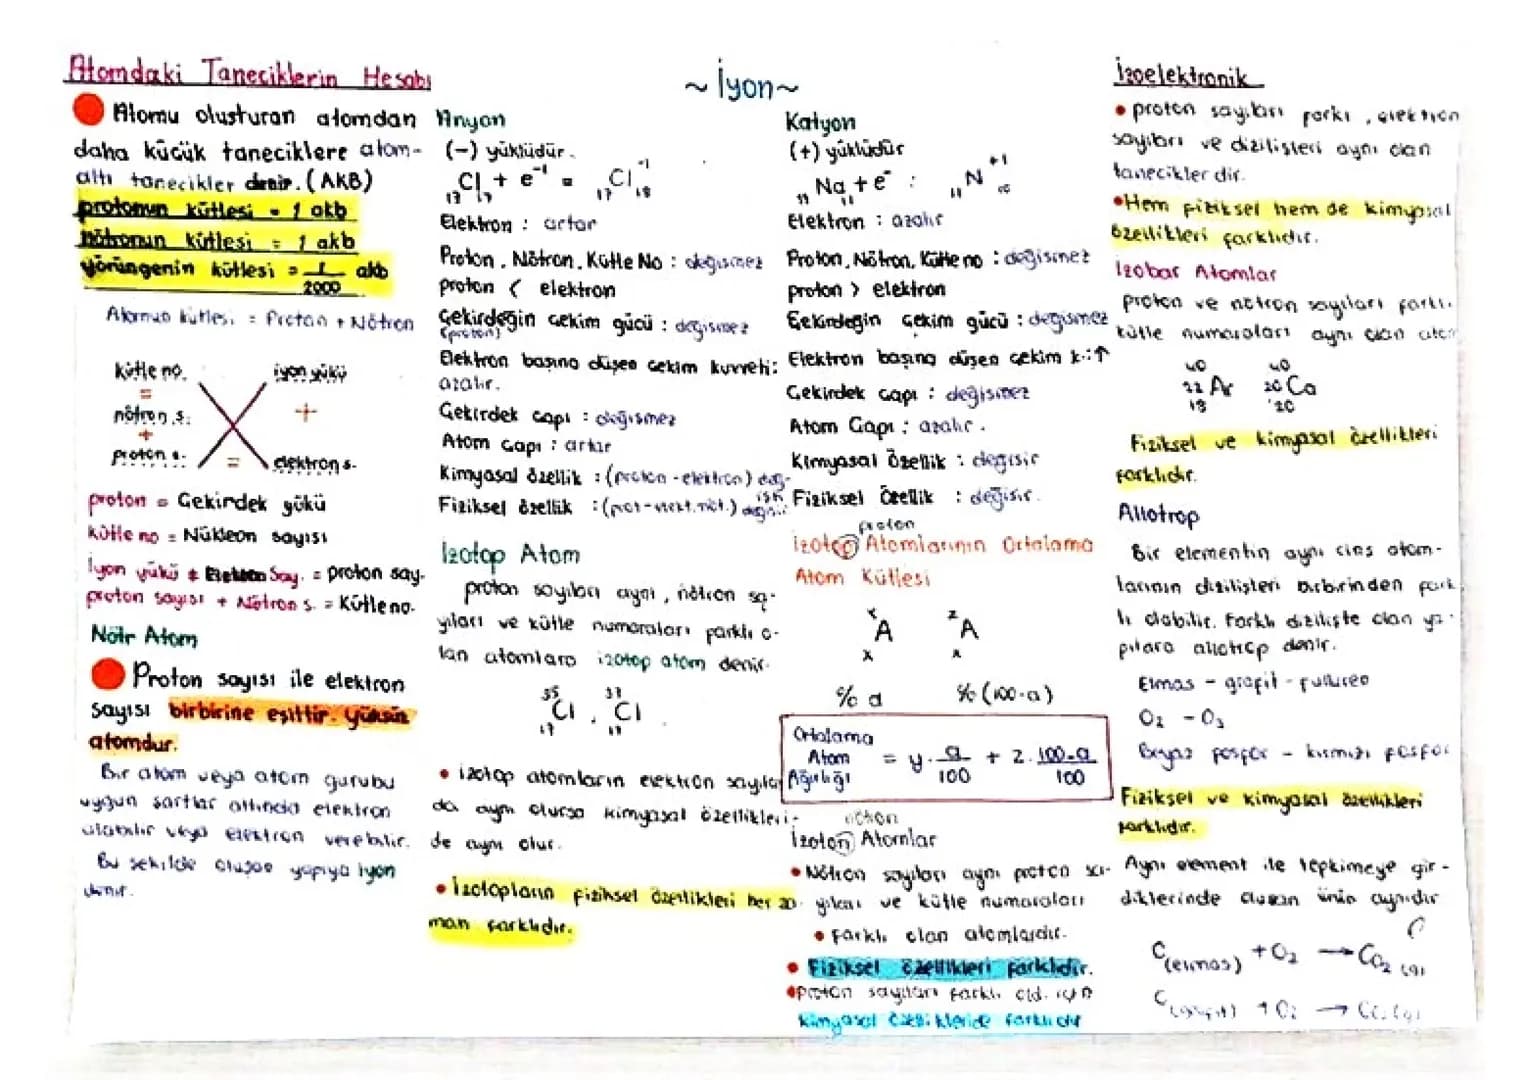 Atomdaki Taneciklerin Hesabı
Atomu oluşturan atomdan
daha küçük taneciklere atom-
altı tanecikler denir. (AKB)
protonun kütlesi = 1 akb
nötronun kütlesi = 1 akb
yörüngenin kütlesi = 1/2000 akb
Atomun kütlesi = Proton + Nötron
kütle no. iyon yükü
= +
nötron s.
+
proton s. = elektron s.
proton = Çekirdek yükü
kütle no = Nükleon sayısı
İyon yükü + Elektron Say. = proton say.
proton sayısı + Nötron s. = Kütle no.
Nötr Atom
Proton sayısı ile elektron
sayısı birbirine eşittir. Yüksüz
atomdur.
Bir atom veya atom gurubu
uygun şartlar altında elektron
alabilir veya elektron verebilir.
Bu şekilde oluşan yapıya iyon
denir.
~İyon~
Anyon
(-) yüklüdür.
17Cl17 + e-1 = 17Cl18 -1
Elektron : artar
Proton, Nötron, Kütle No : değişmez
proton < elektron
Çekirdeğin çekim gücü : değişmez
(proton)
Elektron başına düşen çekim kuvveti:
azalır.
Çekirdek çapı : değişmez
Atom çapı : artar
Kimyasal özellik : (proton - elektron) değ-
işir
Fiziksel özellik : (prot-elekt.nöt.) değişir
İzotop Atom
proton sayıları aynı, nötron sa-
yıları ve kütle numaraları farklı o-
lan atomlara izotop atom denir.
35 37
Cl , Cl
17 17
• izotop atomların elektron sayıları
da aynı olursa kimyasal özellikleri-
de aynı olur.
• İzotopların fiziksel özellikleri her za-
man farklıdır.
Katyon
(+) yüklüdür
11Na11 + e- : 11N +1
Elektron : azalır
Proton, Nötron, Kütle no : değişmez
proton > elektron
Çekirdeğin çekim gücü : değişmez
Elektron başına düşen çekim k.:↑
Çekirdek çapı : değişmez
Atom Çapı : azalır.
Kimyasal Özellik : değişir
Fiziksel Özellik : değişir.
proton
İzotop Atomlarının Ortalama
Atom Kütlesi
y z
A A
x x
% a %(100-a)
Ortalama
Atom = y. a/100 + z. 100-a/100
Ağırlığı
nötron
İzoton Atomlar
• Nötron sayıları aynı proton sa-
yıları ve kütle numaraları
• farklı olan atomlardır.
• Fiziksel özellikleri farklıdır.
• Proton sayıları farklı old. için
kimyasal özellikleride farklıdır
İzoelektronik
• proton sayıları farkı, elektron
sayıları ve dizilişleri aynı olan
taneciklerdir.
• Hem fiziksel hem de kimyasal
özellikleri farklıdır.
İzobar Atomlar
proton ve nötron sayıları farklı.
kütle numaraları aynı olan atom
40 40
22 Ar 20 Ca
18 20
Fiziksel ve kimyasal özellikleri
farklıdır.
Allotrop
Bir elementin aynı cins atom-
larının dizilişleri birbirinden fark-
lı olabilir. Farklı dizilişte olan ya-
pılara allotrop denir.
Elmas - grafit - fulleren
O2 - O3
Beyaz fosfor - kırmızı fosfor
Fiziksel ve kimyasal özellikleri
farklıdır.
Aynı element ile tepkimeye gir-
diklerinde oluşan ürün aynıdır
C(elmas) + O2 → CO2 (g)
C(grafit) + O2 → CO2(g)